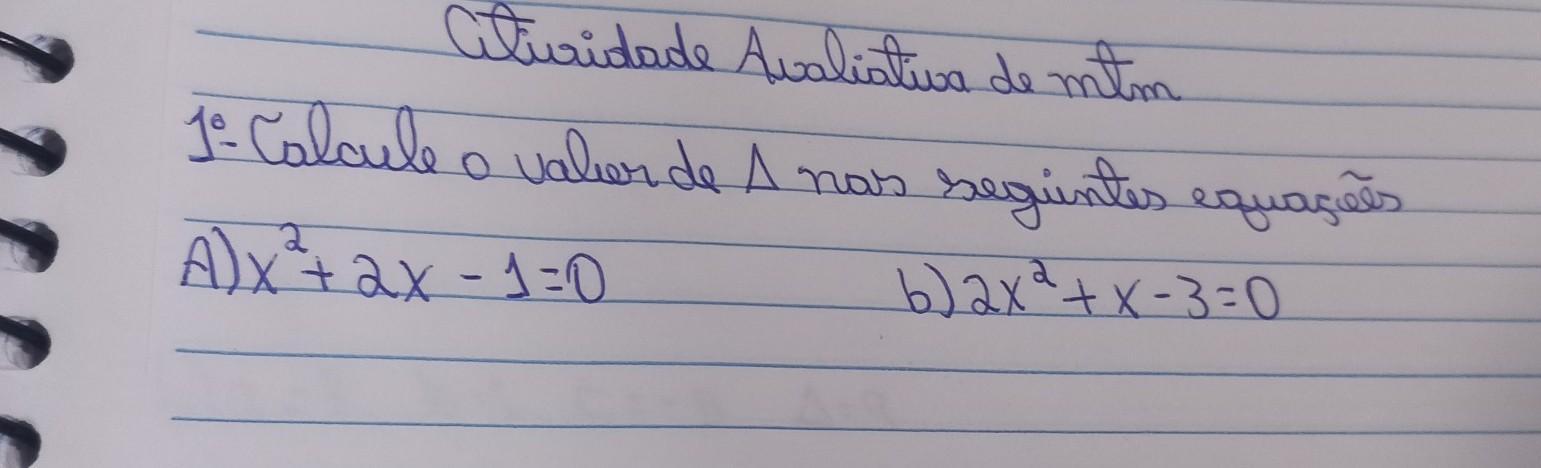 Atividade Avaliativa de mtm
1º- Calcule o valor de Δ nas seguintes equações
A) x² + 2x - 1 = 0 b) 2x² + x - 3 = 0